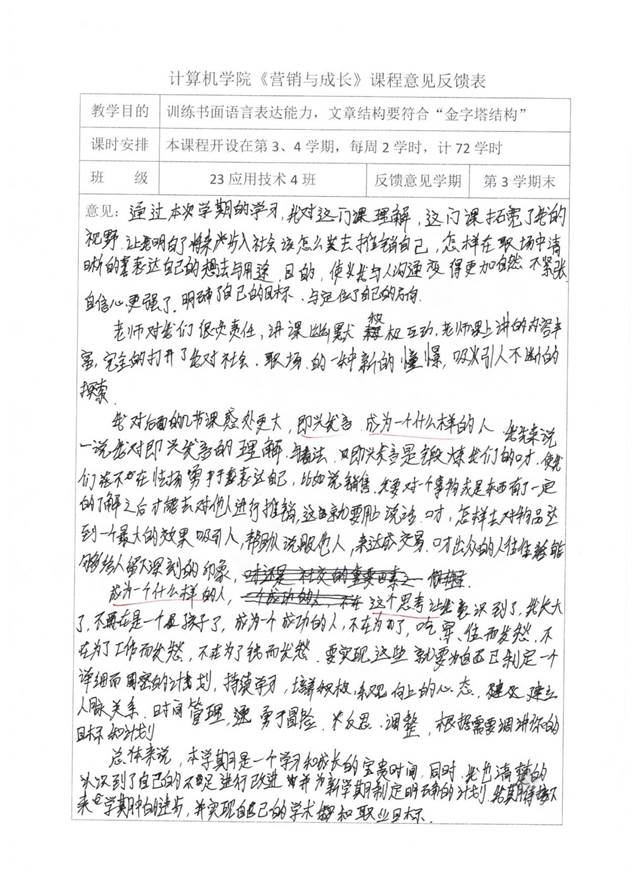 计算机学院《营销与成长》课程意见反馈表
教学目的 训练书面语言表达能力，文章结构要符合“金字塔结构”
课时安排 本课程开设在第 3、4 学期，每周 2 学时，计 72 学时
班 级 23 应用技术 4 班 反馈意见学期 第 3 学期末
意见：通过本次学期的学习，我对这门课理解，这门课拓宽了我的
视野．让我明白了将来步入社会该怎么去推销自己，怎样在职场中清
晰的表达自己的想法与用途．目的，使我与人沟通变得更加自然 不紧张
自信心更强了．明确了自己的目标．与定位了自己的方向．
老师对我们很负责任，讲课幽默 积极互动．老师课上讲的内容丰
富，完全的打开了我对社会．职场．的一种新的憧憬，吸引人不断的
探索．
我对后面的几节课感处更大，即兴发言．成为一个什么样的人 我先来说
一说我对即兴发言的理解 与看法．即兴发言是锻炼我们的口才．使我
们在不在怯场勇于表达自己，比如说销售．先要对个事物或是东西有了一定
的了解之后才能去对他人进行推销，这就要用上说话．口才，怎样去对物品达
到一个最大的效果吸引人，帮助说服他人，来达成交易．口才出众的人往往能
够给人留下深刻的印象，
成为一个什么样的人，这个思考让我意识到了，我长大
了，不再在是一个孩子了，成为一个成功的人，不在为了，吃 穿、住而发愁．不
在为了工作而发愁，不在为了钱而发愁．要实现这些 就要为自己制定一个
详细而周密的计划，持续学习，培养积极乐观向上的心态．建立
人脉关系．时间管理，勇于冒险．反思．调整，根据需要调讲你的
目标和计划
总体来说，本学期是一个学习和成长的宝贵时间．同时．我也清楚的
认识到了自己的不足进行改进 并为新学期制定明确的计划．我期待接下
来学期中的进步，并实现自己的学术和职业目标．